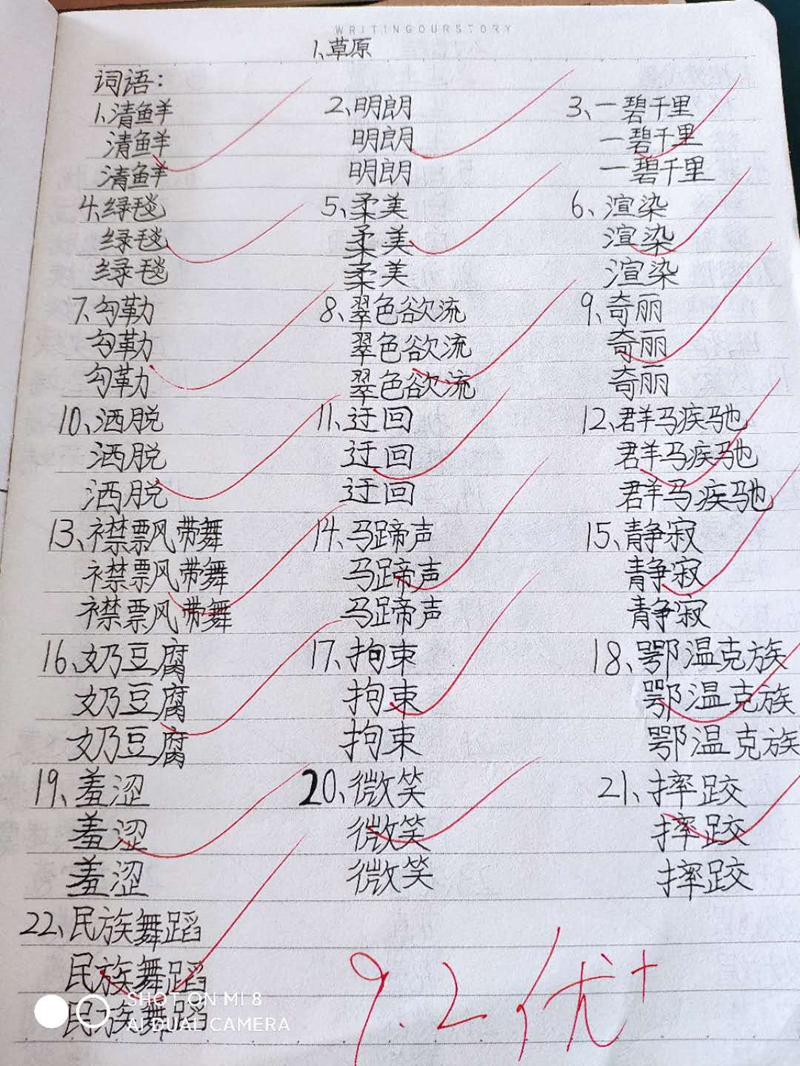 WRITINGOURSTORY
1、草原
词语：
1、清鲜 2、明朗 3、一碧千里
清鲜 明朗 一碧千里
清鲜 明朗 一碧千里
4、绿毯 5、柔美 6、渲染
绿毯 柔美 渲染
绿毯 柔美 渲染
7、勾勒 8、翠色欲流 9、奇丽
勾勒 翠色欲流 奇丽
勾勒 翠色欲流 奇丽
10、洒脱 11、迂回 12、群马疾驰
洒脱 迂回 群马疾驰
洒脱 迂回 群马疾驰
13、襟飘带舞 14、马蹄声 15、静寂
襟飘带舞 马蹄声 静寂
襟飘带舞 马蹄声 静寂
16、奶豆腐 17、拘束 18、鄂温克族
奶豆腐 拘束 鄂温克族
奶豆腐 拘束 鄂温克族
19、羞涩 20、微笑 21、摔跤
羞涩 微笑 摔跤
羞涩 微笑 摔跤
22、民族舞蹈
民族舞蹈
民族舞蹈
9.2 优+
SHOT ON MI 8
AI DUAL CAMERA